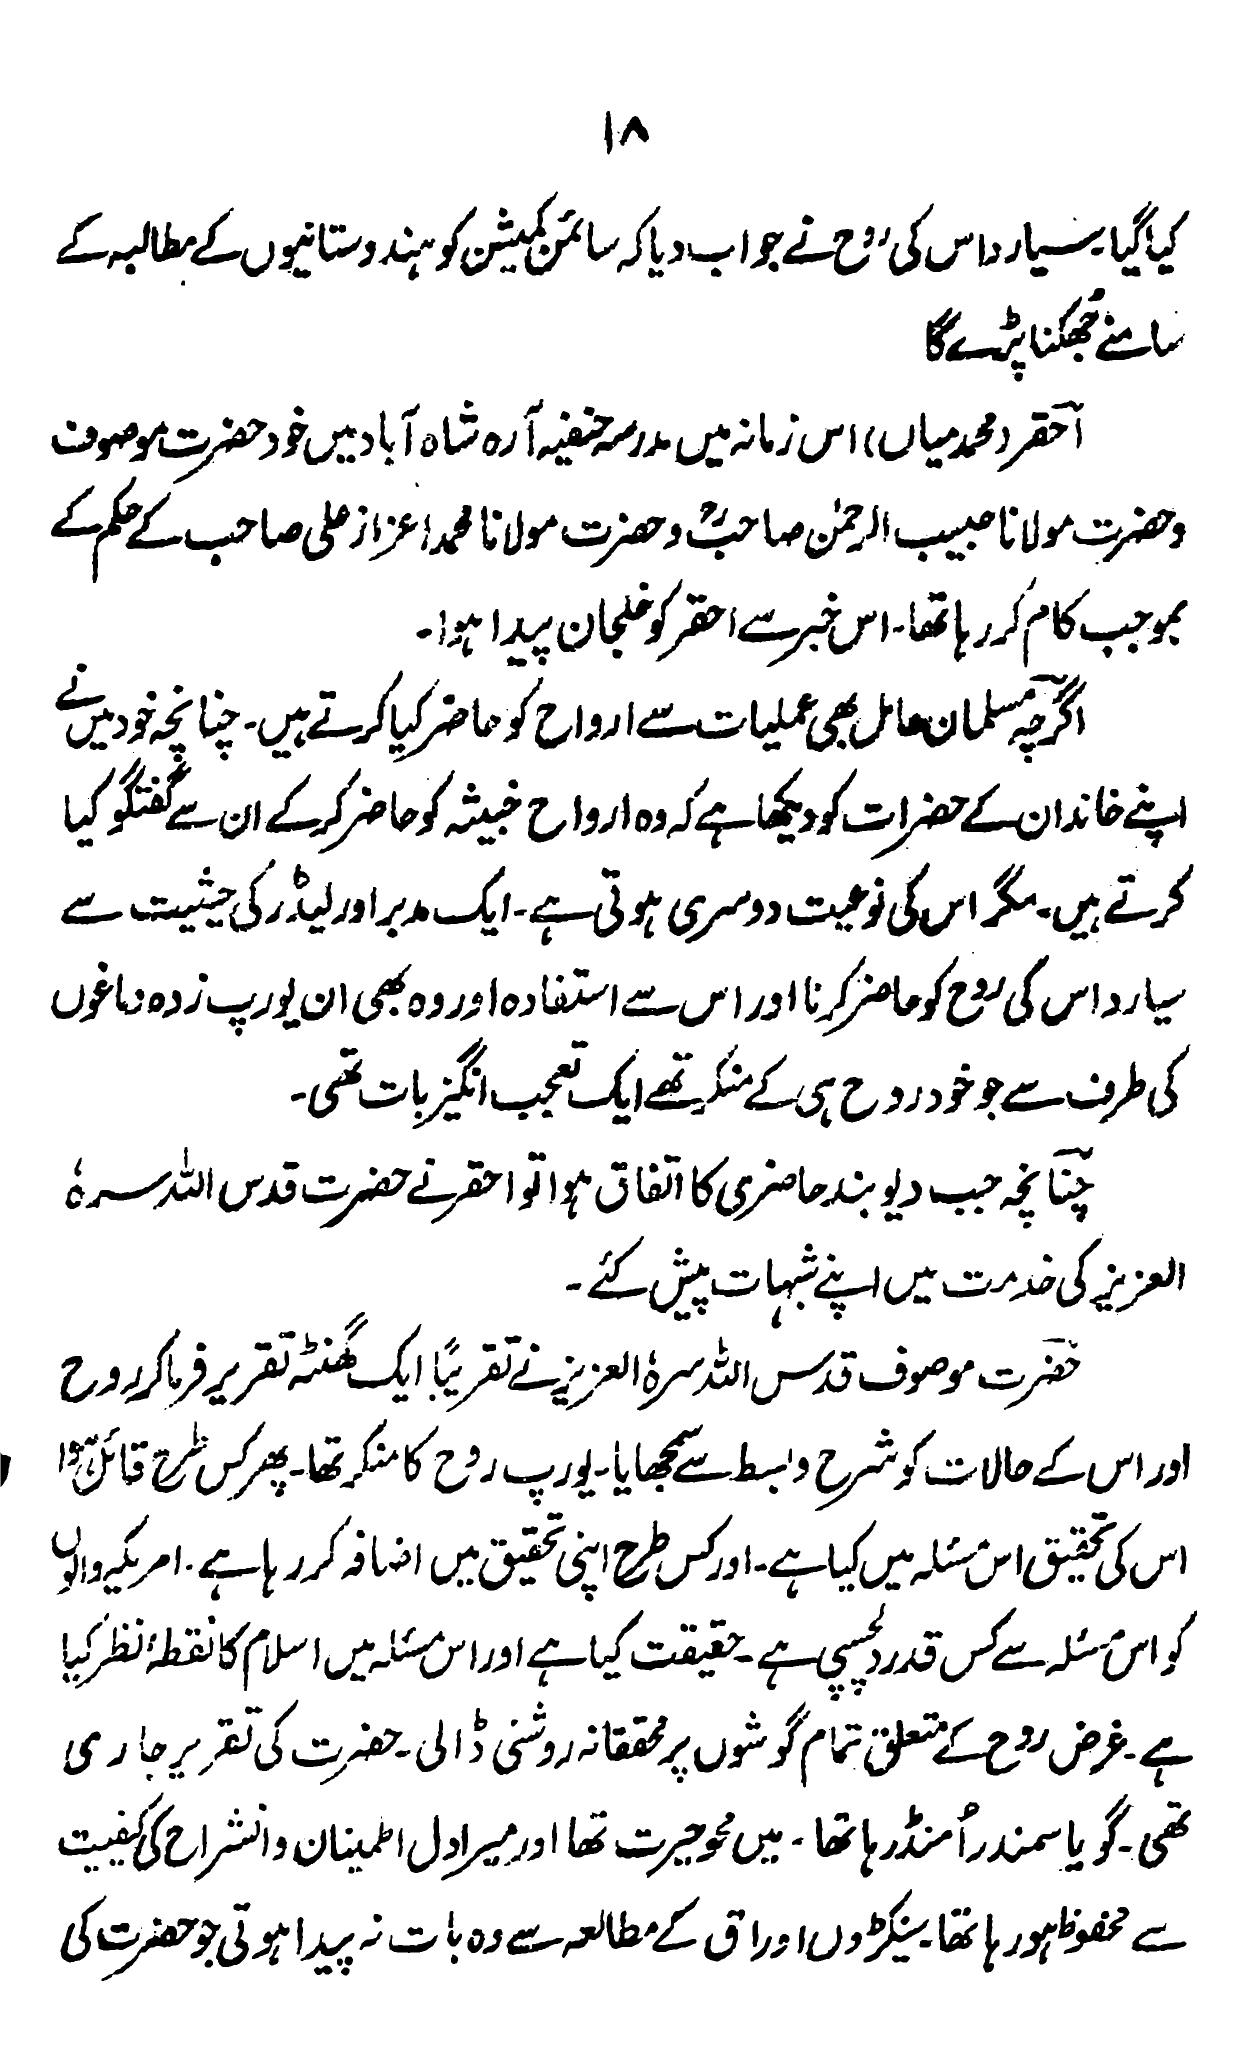 ۱۸
کیا گیا۔ سیارداس کی روح نے جواب دیا کہ سائمن کمیشن کو ہندوستانیوں کے مطالبہ کے
سامنے جُھکنا پڑے گا
احقر (محمد میاں) اس زمانہ میں مدرسہ حنفیہ آرہ شاہ آباد میں خود حضرت موصوف
و حضرت مولانا حبیب الرحمٰن صاحبؒ و حضرت مولانا محمد اعزاز علی صاحب کے حکم کے
بموجب کام کر رہا تھا۔ اس خبر سے احقر کو خلجان پیدا ہوا۔
اگرچہ مسلمان عامل بھی عملیات سے ارواح کو حاضر کیا کرتے ہیں۔ چنانچہ خود میں نے
اپنے خاندان کے حضرات کو دیکھا ہے کہ وہ ارواح خبیثہ کو حاضر کر کے ان سے گفتگو کیا
کرتے ہیں۔ مگر اس کی نوعیت دوسری ہوتی ہے۔ ایک مدبر اور لیڈر کی حیثیت سے
سیارداس کی روح کو حاضر کرنا اور اس سے استفادہ اور وہ بھی ان یورپ زدہ دماغوں
کی طرف سے جو خود روح ہی کے منکر تھے ایک تعجب انگیز بات تھی۔
چنانچہ جب دیوبند حاضری کا اتفاق ہوا تو احقر نے حضرت قدس اللہ سرہٗ
العزیز کی خدمت میں اپنے شبہات پیش کئے۔
حضرت موصوف قدس اللہ سرہٗ العزیز نے تقریبًا ایک گھنٹہ تقریر فرما کر روح
اور اس کے حالات کو شرح و بسط سے سمجھایا۔ یورپ روح کا منکر تھا۔ پھر کس طرح قائل ہوا
اس کی تحقیق اس مسئلہ میں کیا ہے۔ اور کس طرح اپنی تحقیق میں اضافہ کر رہا ہے۔ امریکہ والوں
کو اس مسئلہ سے کس قدر دلچسپی ہے۔ حقیقت کیا ہے اور اس مسئلہ میں اسلام کا نقطۂ نظر کیا
ہے۔ غرض روح کے متعلق تمام گوشوں پر محققانہ روشنی ڈالی۔ حضرت کی تقریر جاری
تھی۔ گویا سمندر اُمنڈ رہا تھا۔ میں محو حیرت تھا اور میرا دل اطمینان و انشراح کی کیفیت
سے محفوظ ہو رہا تھا۔ سینکڑوں اوراق کے مطالعہ سے وہ بات نہ پیدا ہوتی جو حضرت کی